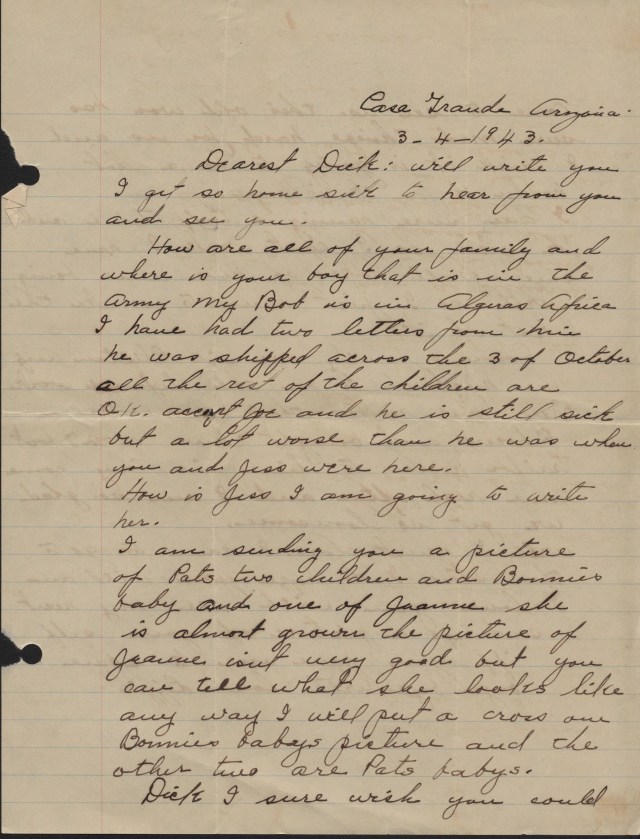 Casa Grande Arozona.
3-4-1943.
Dearest Dick: will write you
I get so home sick to hear from you
and see you.
How are all of your family and
where is your boy that is in the
army My Bob is in Algiras Africa
I have had two letters from him
he was shipped across the 3 of October
all the rest of the children are
O.K. accept Joe and he is still sick
but a lot worse than he was when
you and Jess were here.
How is Jess I am going to write
her.
I am sending you a picture
of Pats two children and Bonnies
baby and one of Jeanne she
is almost grown the picture of
Jeanne isnt very good but you
can tell what she looks like
any way I will put a cross on
Bonnies babys picture and the
other two are Pats babys.
Dick I sure wish you could